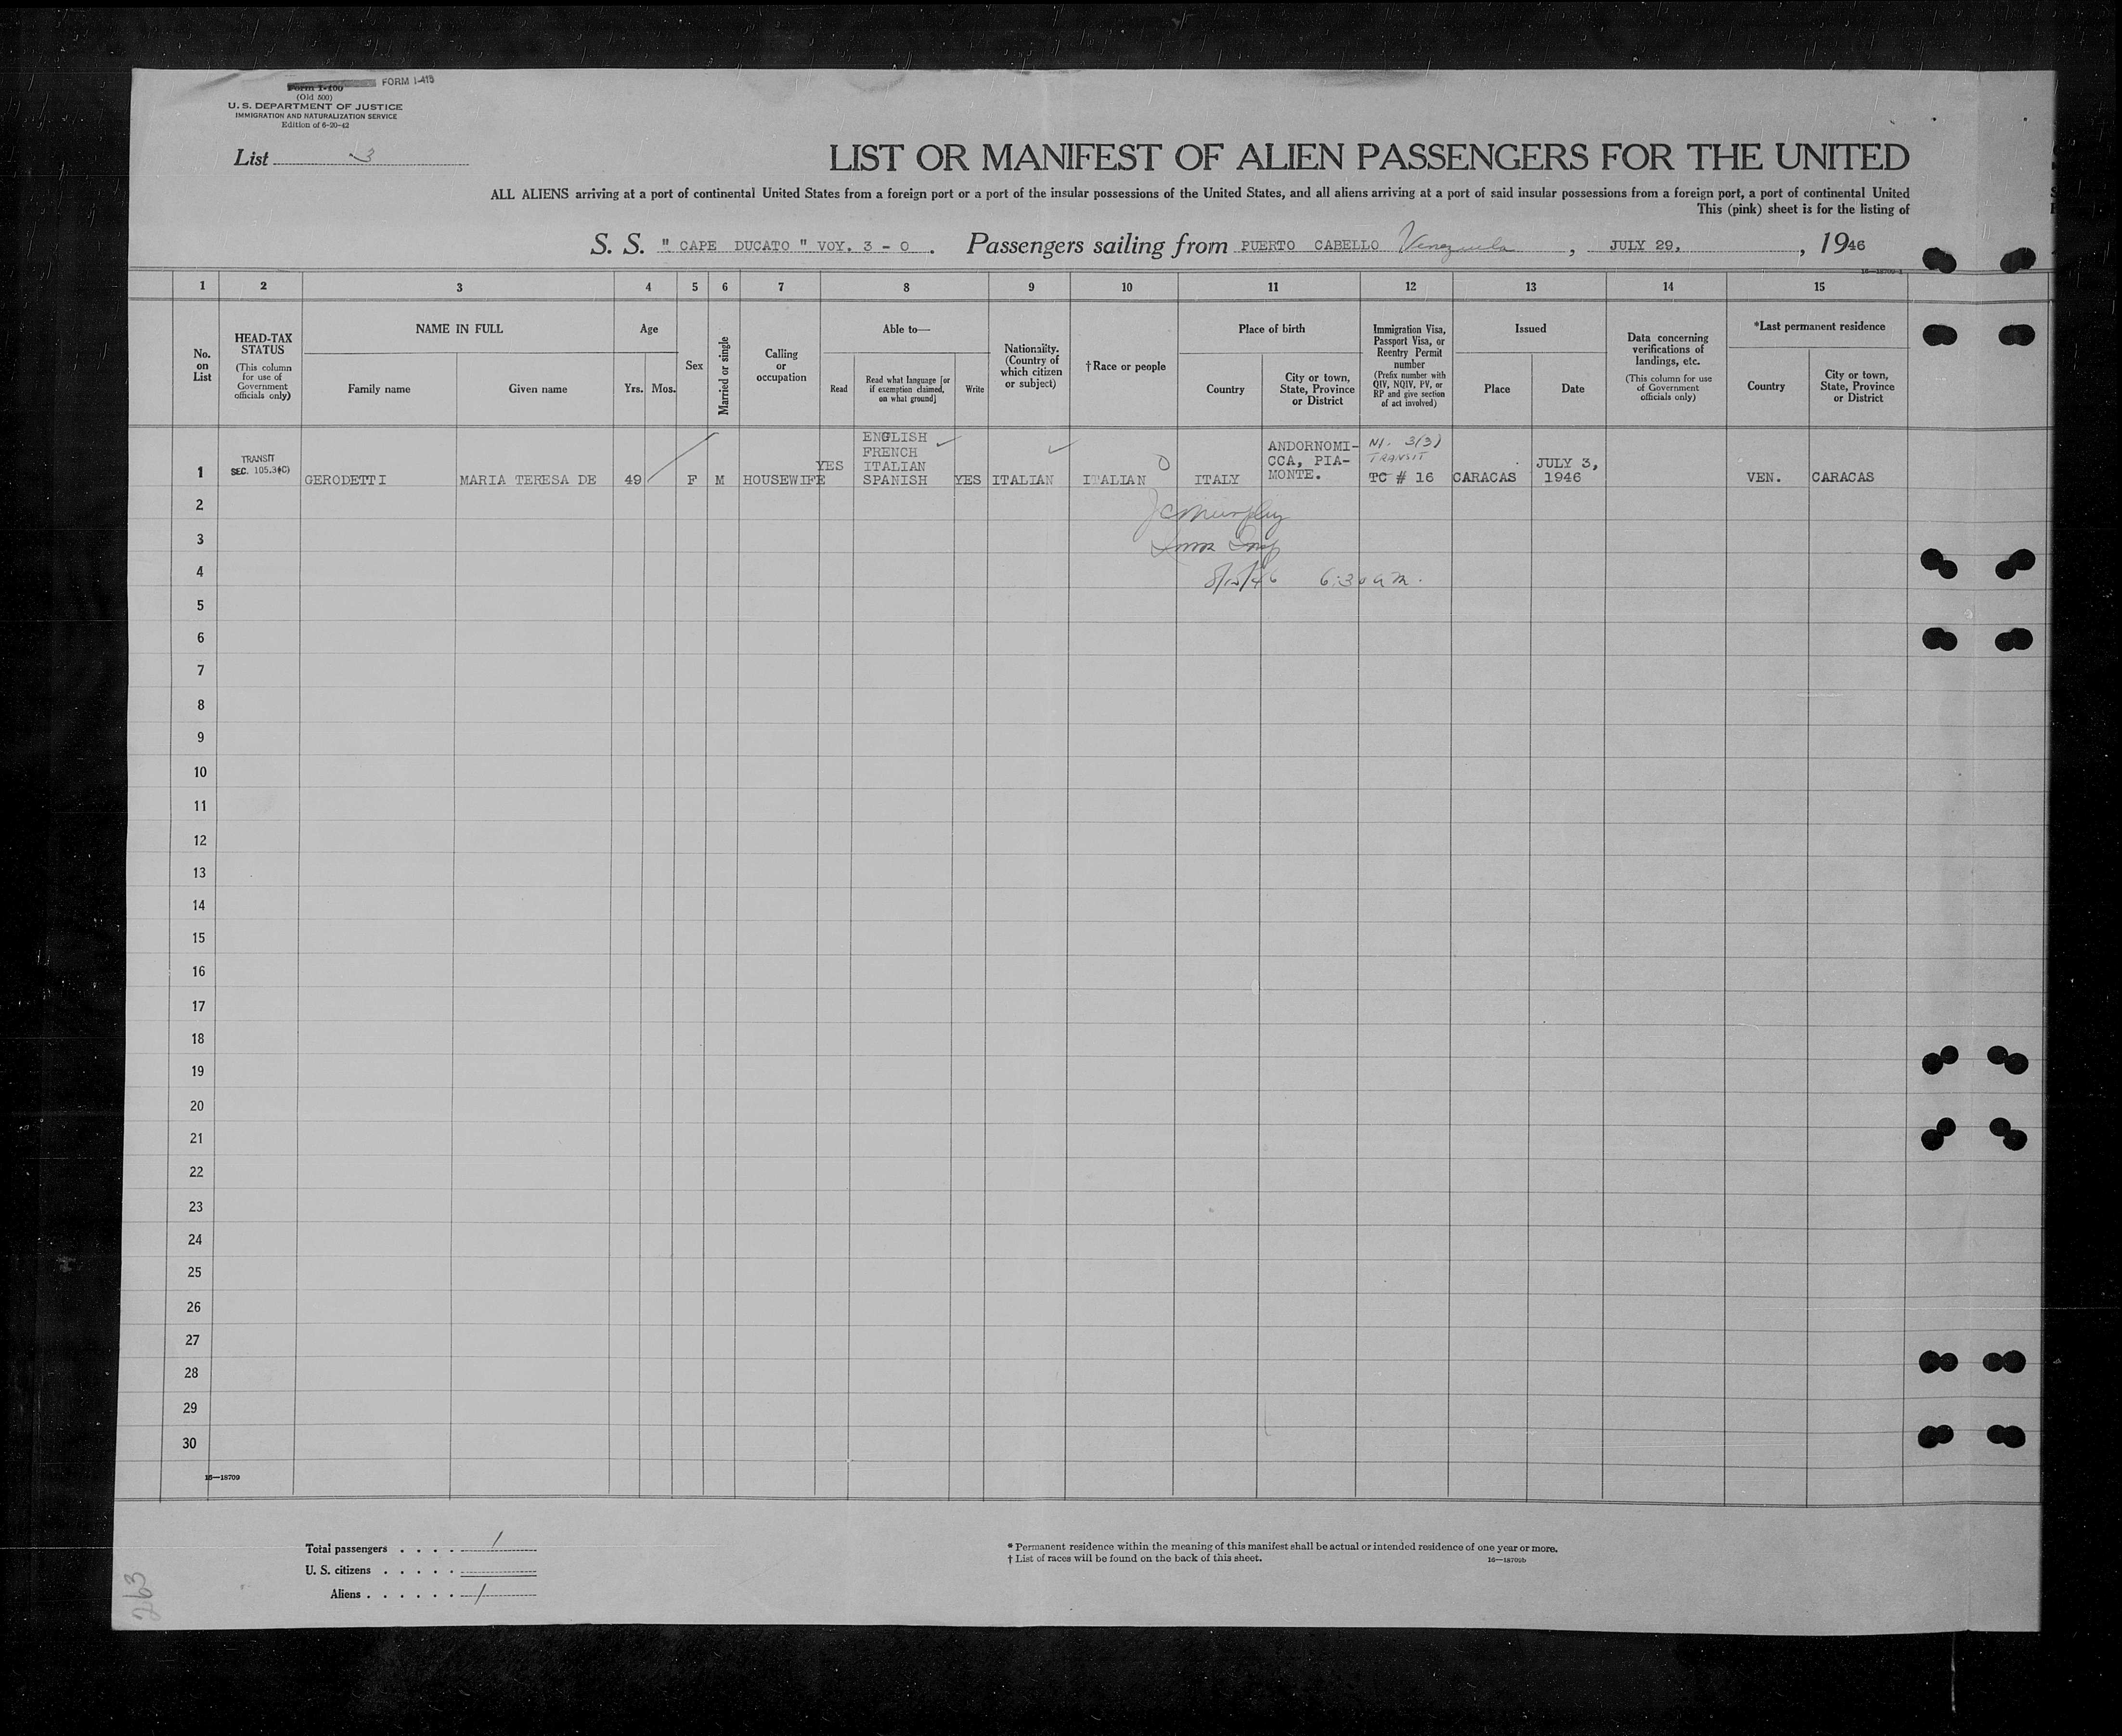 Form I-400 FORM I-415
(Old 500)
U. S. DEPARTMENT OF JUSTICE
IMMIGRATION AND NATURALIZATION SERVICE
Edition of 6-20-42
List 3
LIST OR MANIFEST OF ALIEN PASSENGERS FOR THE UNITED
ALL ALIENS arriving at a port of continental United States from a foreign port or a port of the insular possessions of the United States, and all aliens arriving at a port of said insular possessions from a foreign port, a port of continental United
This (pink) sheet is for the listing of
S. S. " CAPE DUCATO " VOY. 3 - O . Passengers sailing from PUERTO CABELLO Venezuela , JULY 29, , 1946
16—18709-1
1 2 3 4 5 6 7 8 9 10 11 12 13 14 15
No. on List
HEAD-TAX STATUS
(This column for use of Government officials only)
NAME IN FULL
Family name
Given name
Age
Yrs.
Mos.
Sex
Married or single
Calling or occupation
Able to—
Read
Read what language [or if exemption claimed, on what ground]
Write
Nationality. (Country of which citizen or subject)
†Race or people
Place of birth
Country
City or town, State, Province or District
Immigration Visa, Passport Visa, or Reentry Permit number
(Prefix number with QIV, NQIV, PV, or RP and give section of act involved)
Issued
Place
Date
Data concerning verifications of landings, etc.
(This column for use of Government officials only)
*Last permanent residence
Country
City or town, State, Province or District
1
TRANSIT
SEC. 105.3(C)
GERODETTI
MARIA TERESA DE
49
F
M
HOUSEWIFE
YES
ENGLISH
FRENCH
ITALIAN
SPANISH
YES
ITALIAN
ITALIAN
ITALY
ANDORNOMI-
CCA, PIA-
MONTE.
NI. 3(3)
TRANSIT
TC # 16
CARACAS
JULY 3,
1946
VEN.
CARACAS
2
JC Murphy
3
4
8/12/46 6:30 a.m.
5
6
7
8
9
10
11
12
13
14
15
16
17
18
19
20
21
22
23
24
25
26
27
28
29
30
16—18709
Total passengers . . . . 1
U. S. citizens . . . . .
Aliens . . . . . . 1
* Permanent residence within the meaning of this manifest shall be actual or intended residence of one year or more.
† List of races will be found on the back of this sheet.
16—18709b
263